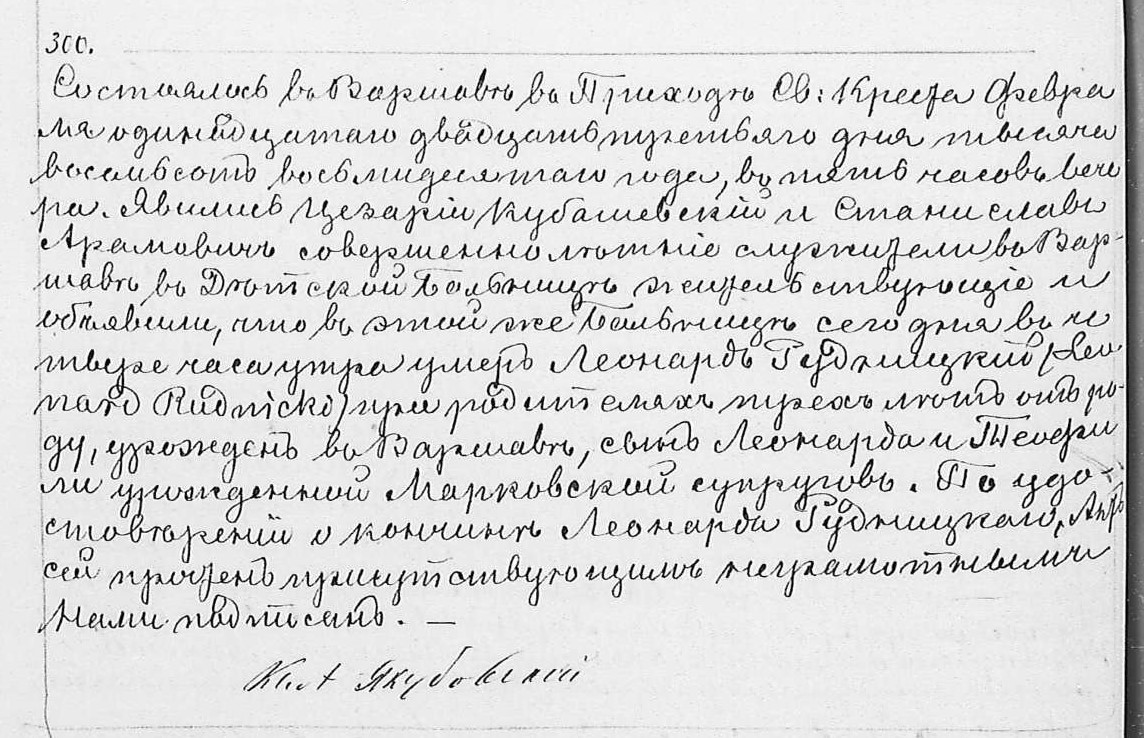 300.
Состоялось въ Варшавѣ въ Приходѣ Св: Креста Февра
ля одинадцатаго двадцать третьяго дня тысяча
восемьсотъ восьмидесятаго года, въ пять часовъ вече
ра. Явились Цезарій Кубашевскій и Станиславъ
Арамовичъ совершеннолѣтніе служители въ Вар-
шавѣ въ Дѣтской Больницѣ жительствующіе и
объявили, что въ этой же Больницѣ сего дня въ че
тыре часа утра умеръ Леонардъ Рудницкій /Leo
nard Rudnicki/ при родителяхъ трехъ лѣтъ отъ ро-
ду, урожденъ въ Варшавѣ, сынъ Леонарда и Теофи
ли урожденной Марковской супруговъ. По удо-
стовѣреніи о кончинѣ Леонарда Рудницкаго, Актъ
сей прочтенъ присутствующимъ неграмотнымъ
Нами подписанъ. —
Якубовскій